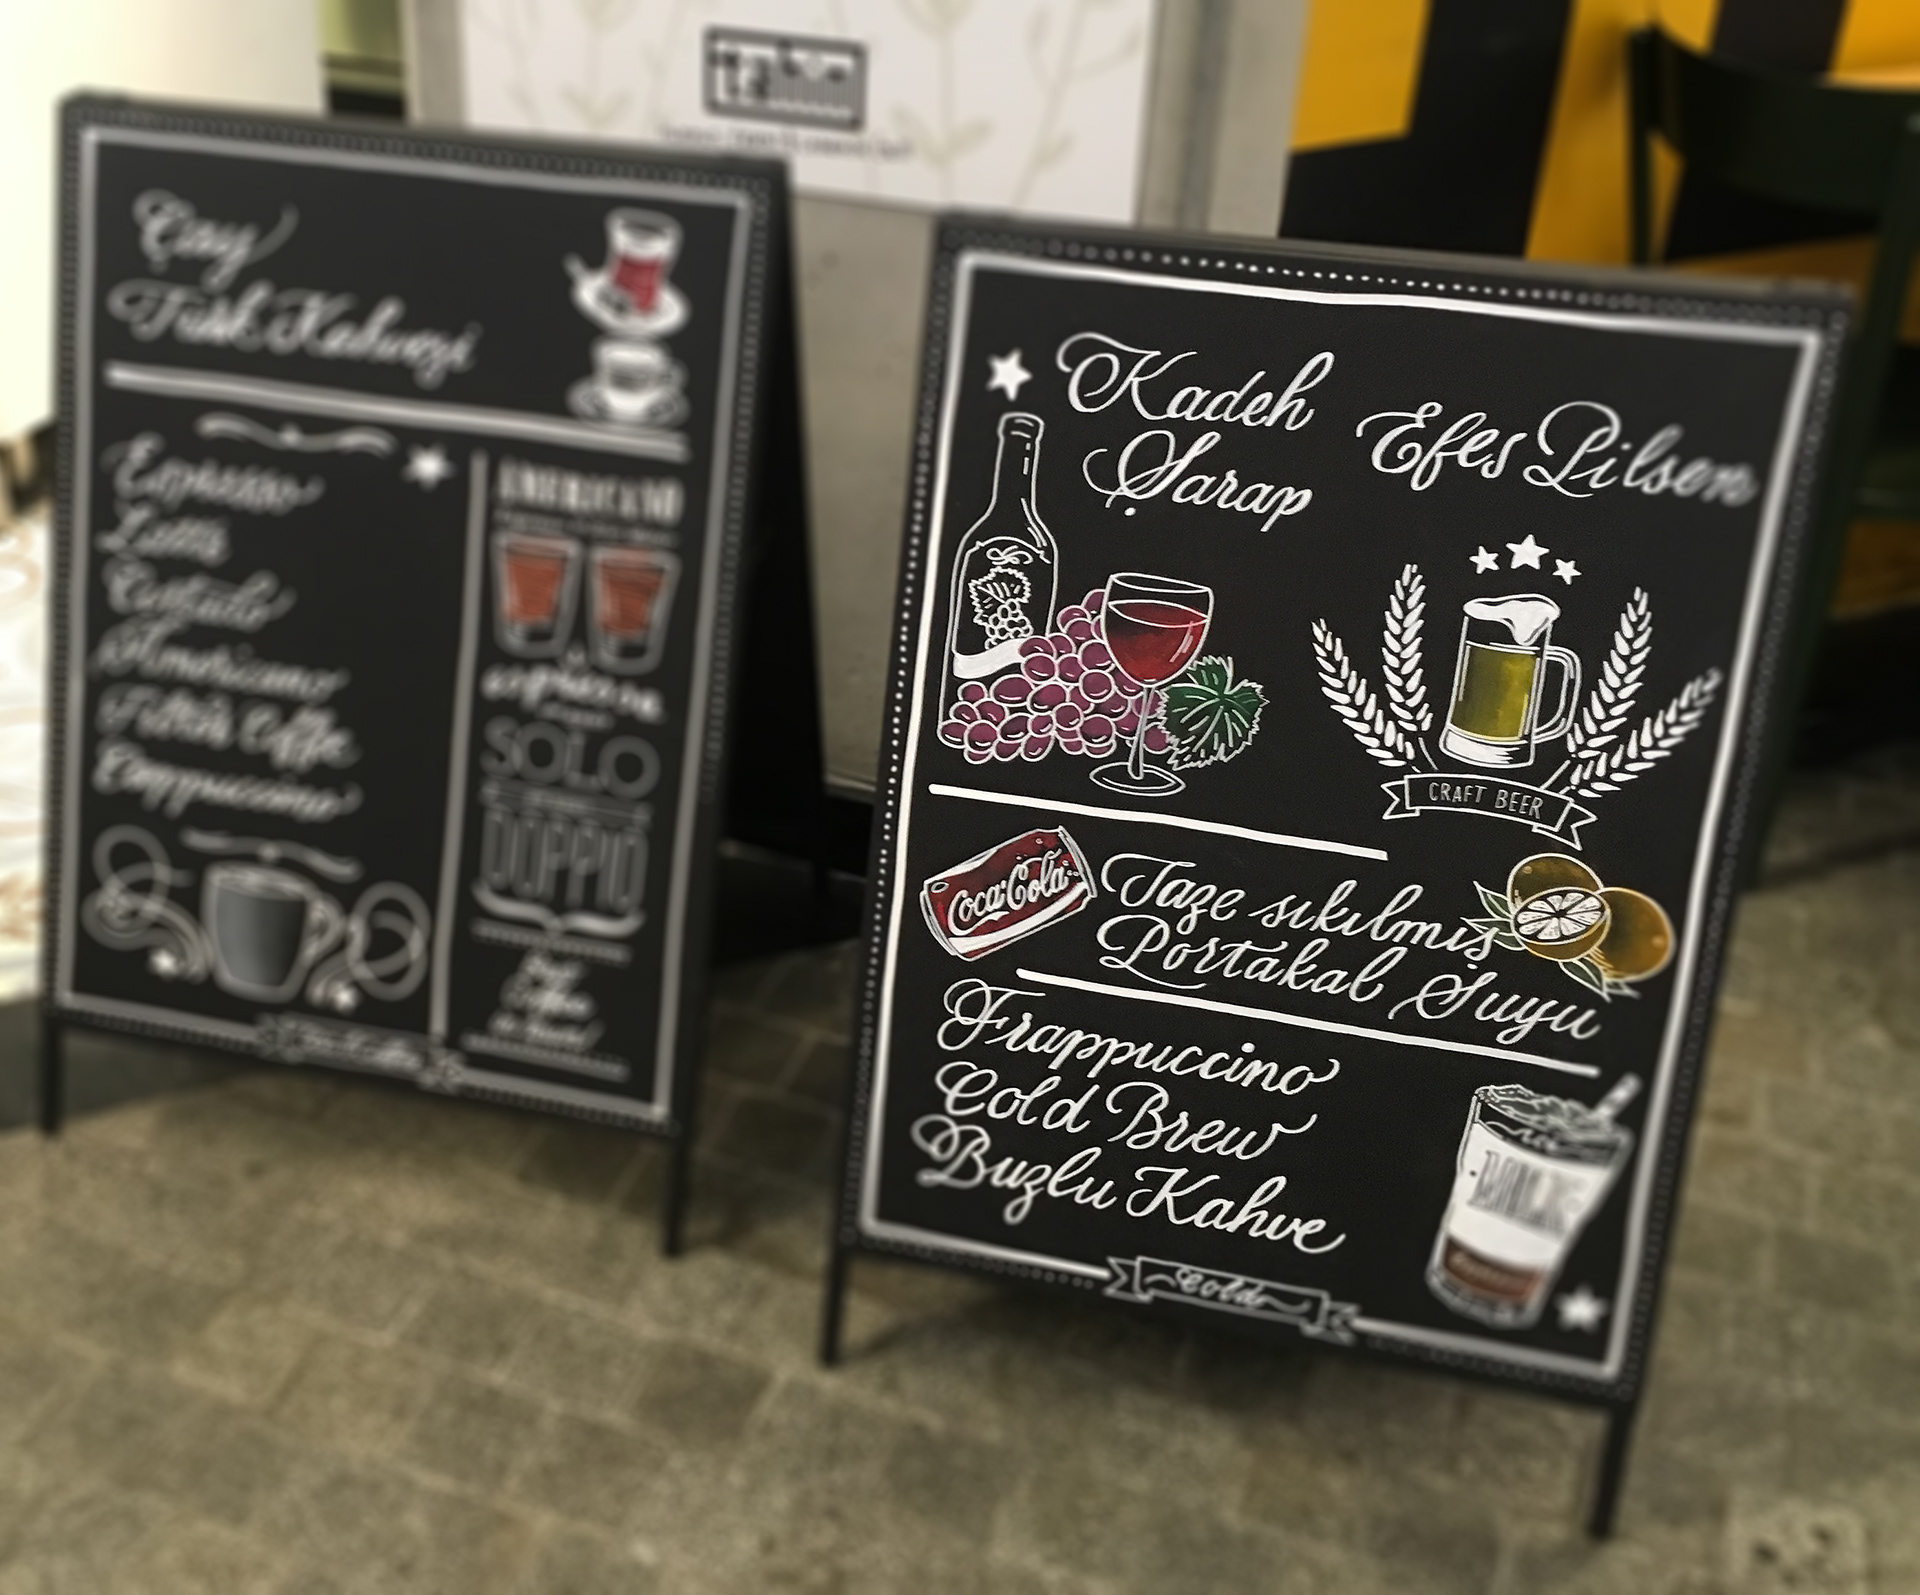 Çay
Türk Kahvesi
Espresso
Latte
Cortado
Americano
Filtre Coffee
Cappuccino
AMERICANO
espresso
SOLO
DOPPIO
Kadeh
Şarap
Efes Pilsen
CRAFT BEER
Coca-Cola
Taze sıkılmış
Portakal Suyu
Frappuccino
Cold Brew
Buzlu Kahve
MILK
Cold